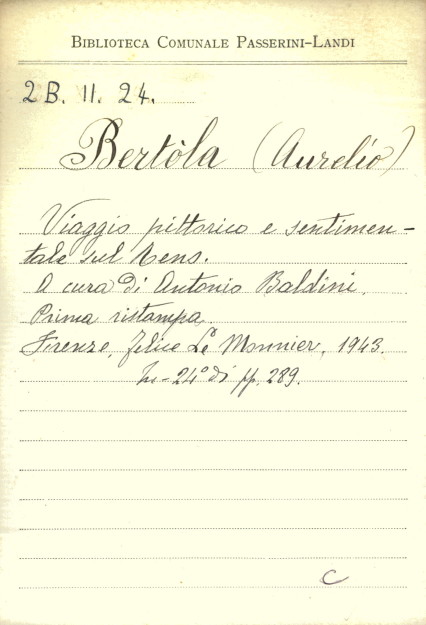 BIBLIOTECA COMUNALE PASSERINI-LANDI
2B. II. 24.
Bertòla (Aurelio)
Viaggio pittorico e sentimen-
tale sul Rens.
A cura di Antonio Baldini.
Prima ristampa.
Firenze, Felice Le Monnier, 1943.
In-24° di pp. 289.
C